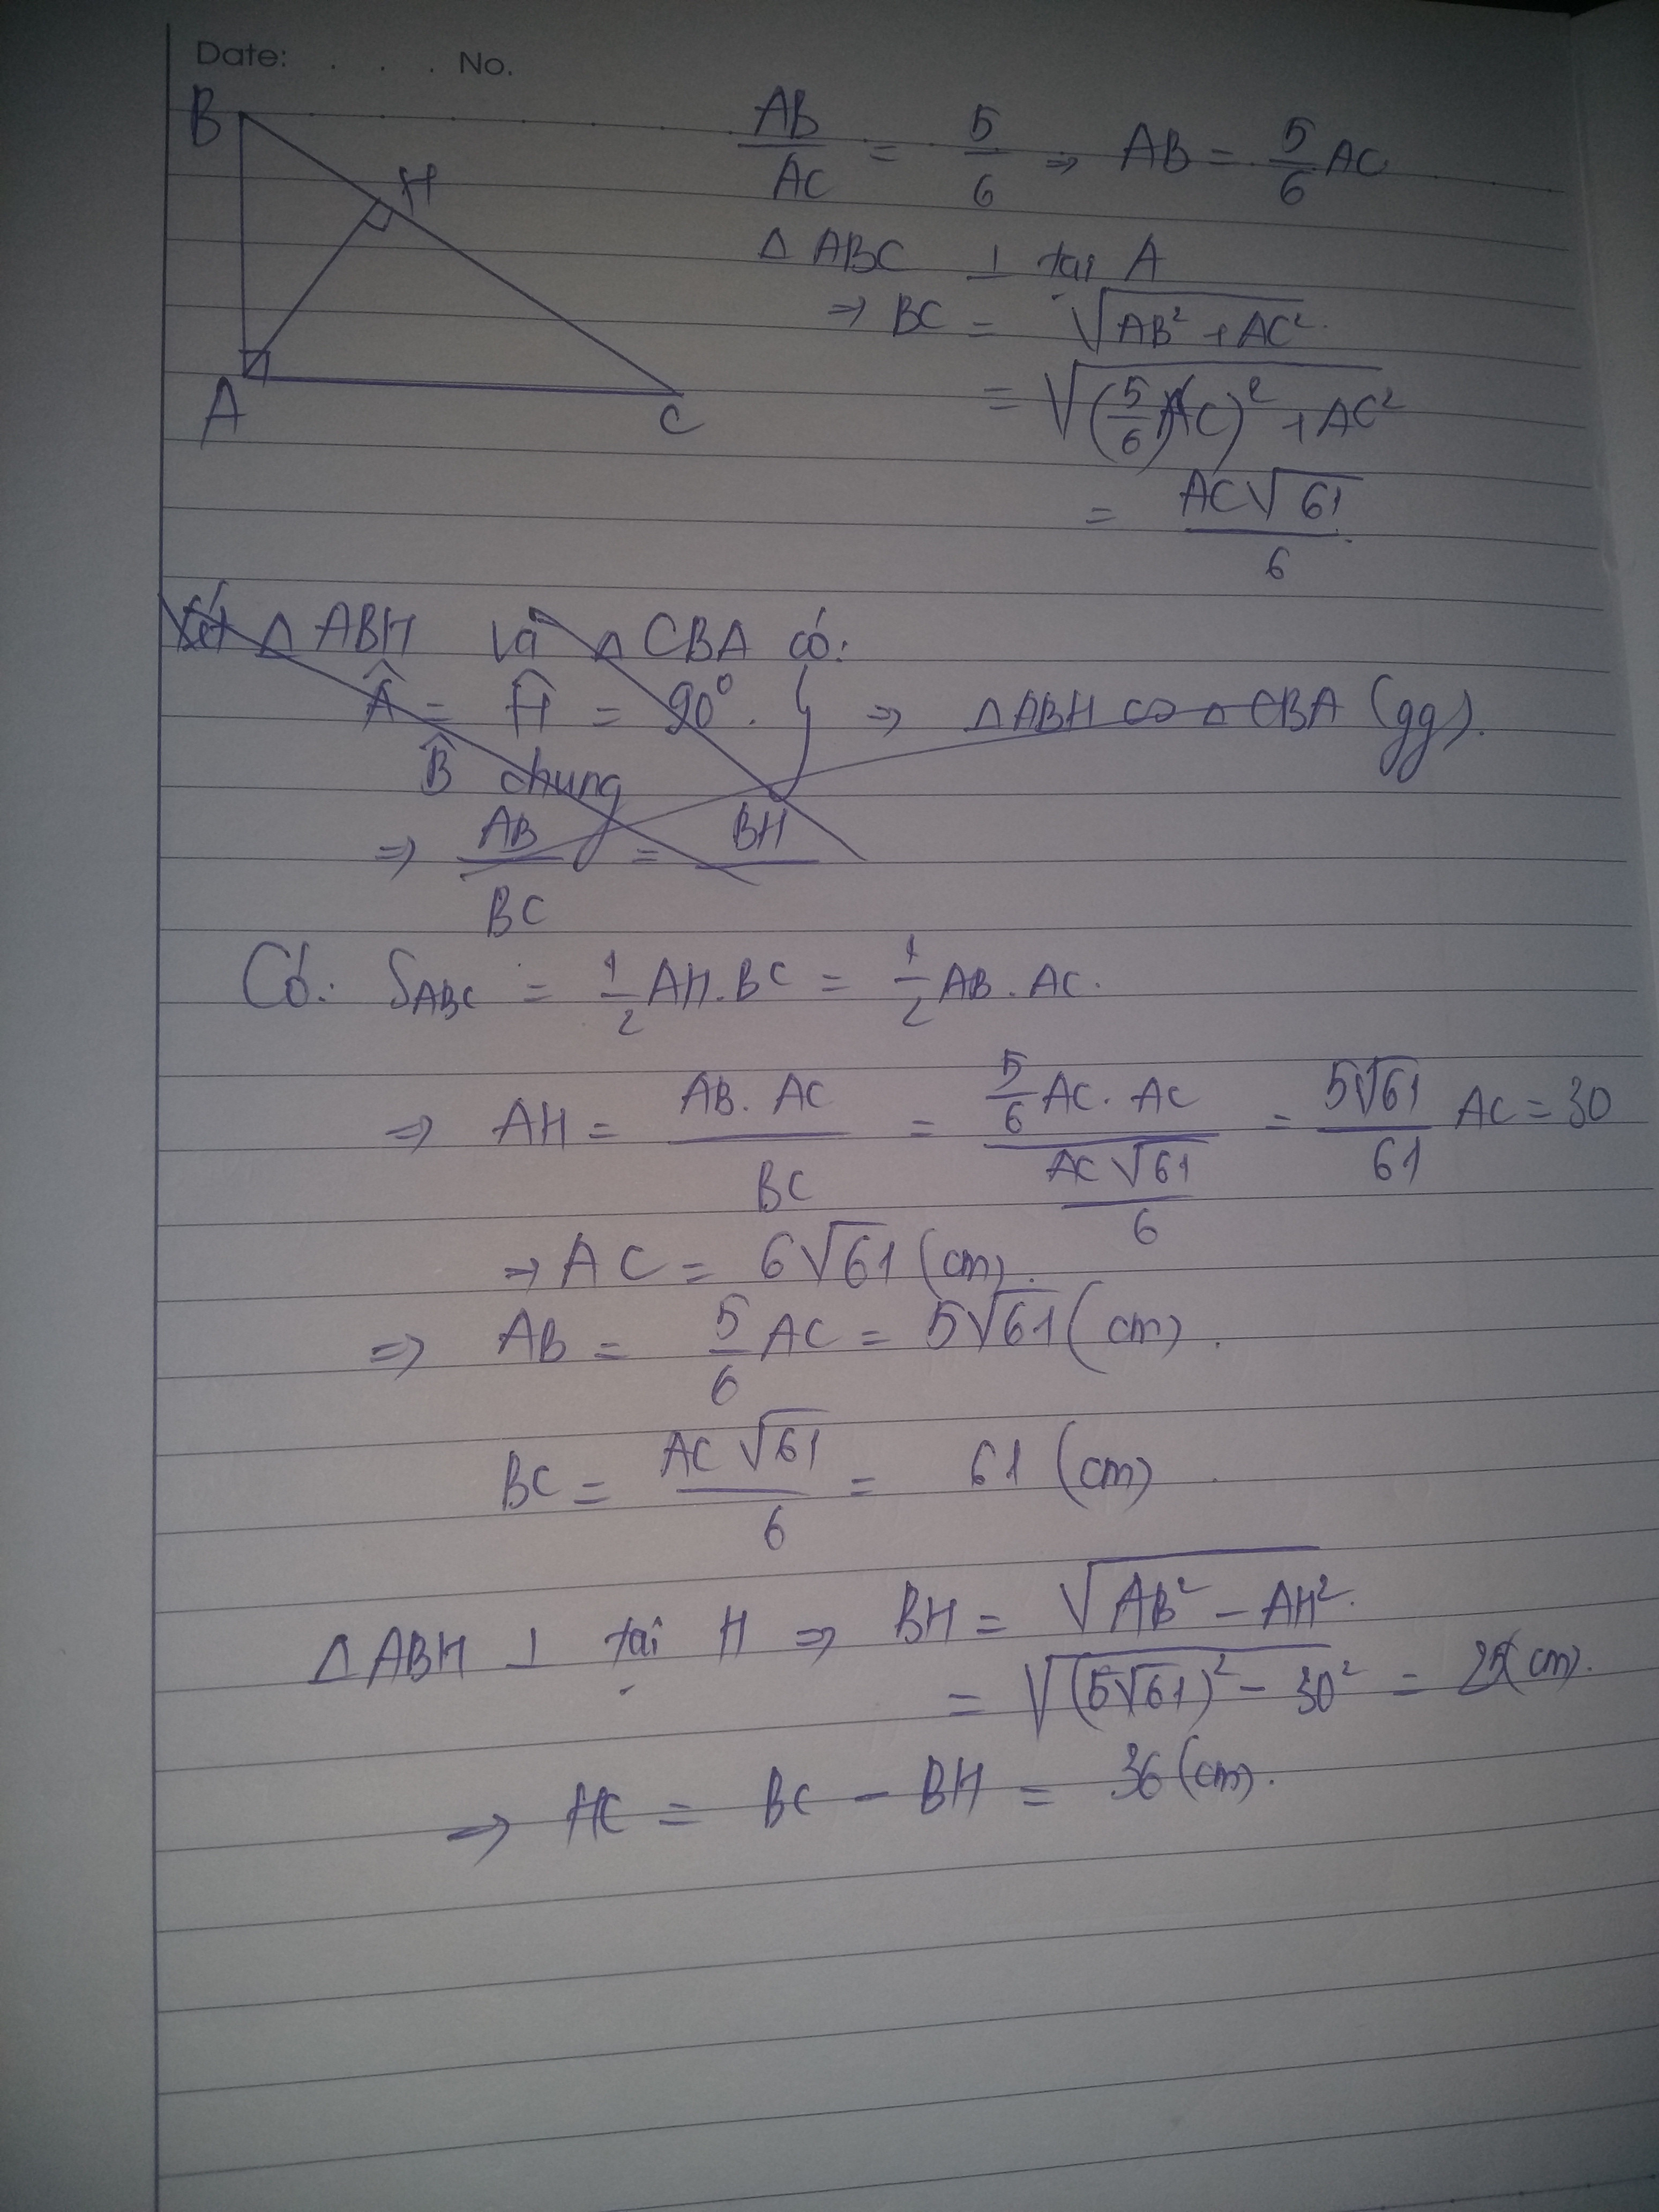 Date: . . . No.
B
H
A
C
AB/AC = 5/6 ⇒ AB = 5/6 AC
Δ ABC ⊥ tại A
⇒ BC = √(AB² + AC²)
= √((5/6 AC)² + AC²)
= AC√61 / 6
Xét Δ ABH và Δ CBA có:
Â = Ĥ = 90°. } ⇒ Δ ABH ∽ Δ CBA (gg).
B̂ chung
⇒ AB/BC = BH/
Có: S_ABC = 1/2 AH.BC = 1/2 AB.AC.
⇒ AH = AB.AC / BC = (5/6 AC.AC) / (AC√61 / 6) = 5√61/61 AC = 30
⇒ AC = 6√61 (cm).
⇒ AB = 5/6 AC = 5√61 (cm).
BC = AC√61 / 6 = 61 (cm)
Δ ABH ⊥ tại H ⇒ BH = √(AB² - AH²).
= √((5√61)² - 30²) = 25(cm).
⇒ HC = BC - BH = 36 (cm).